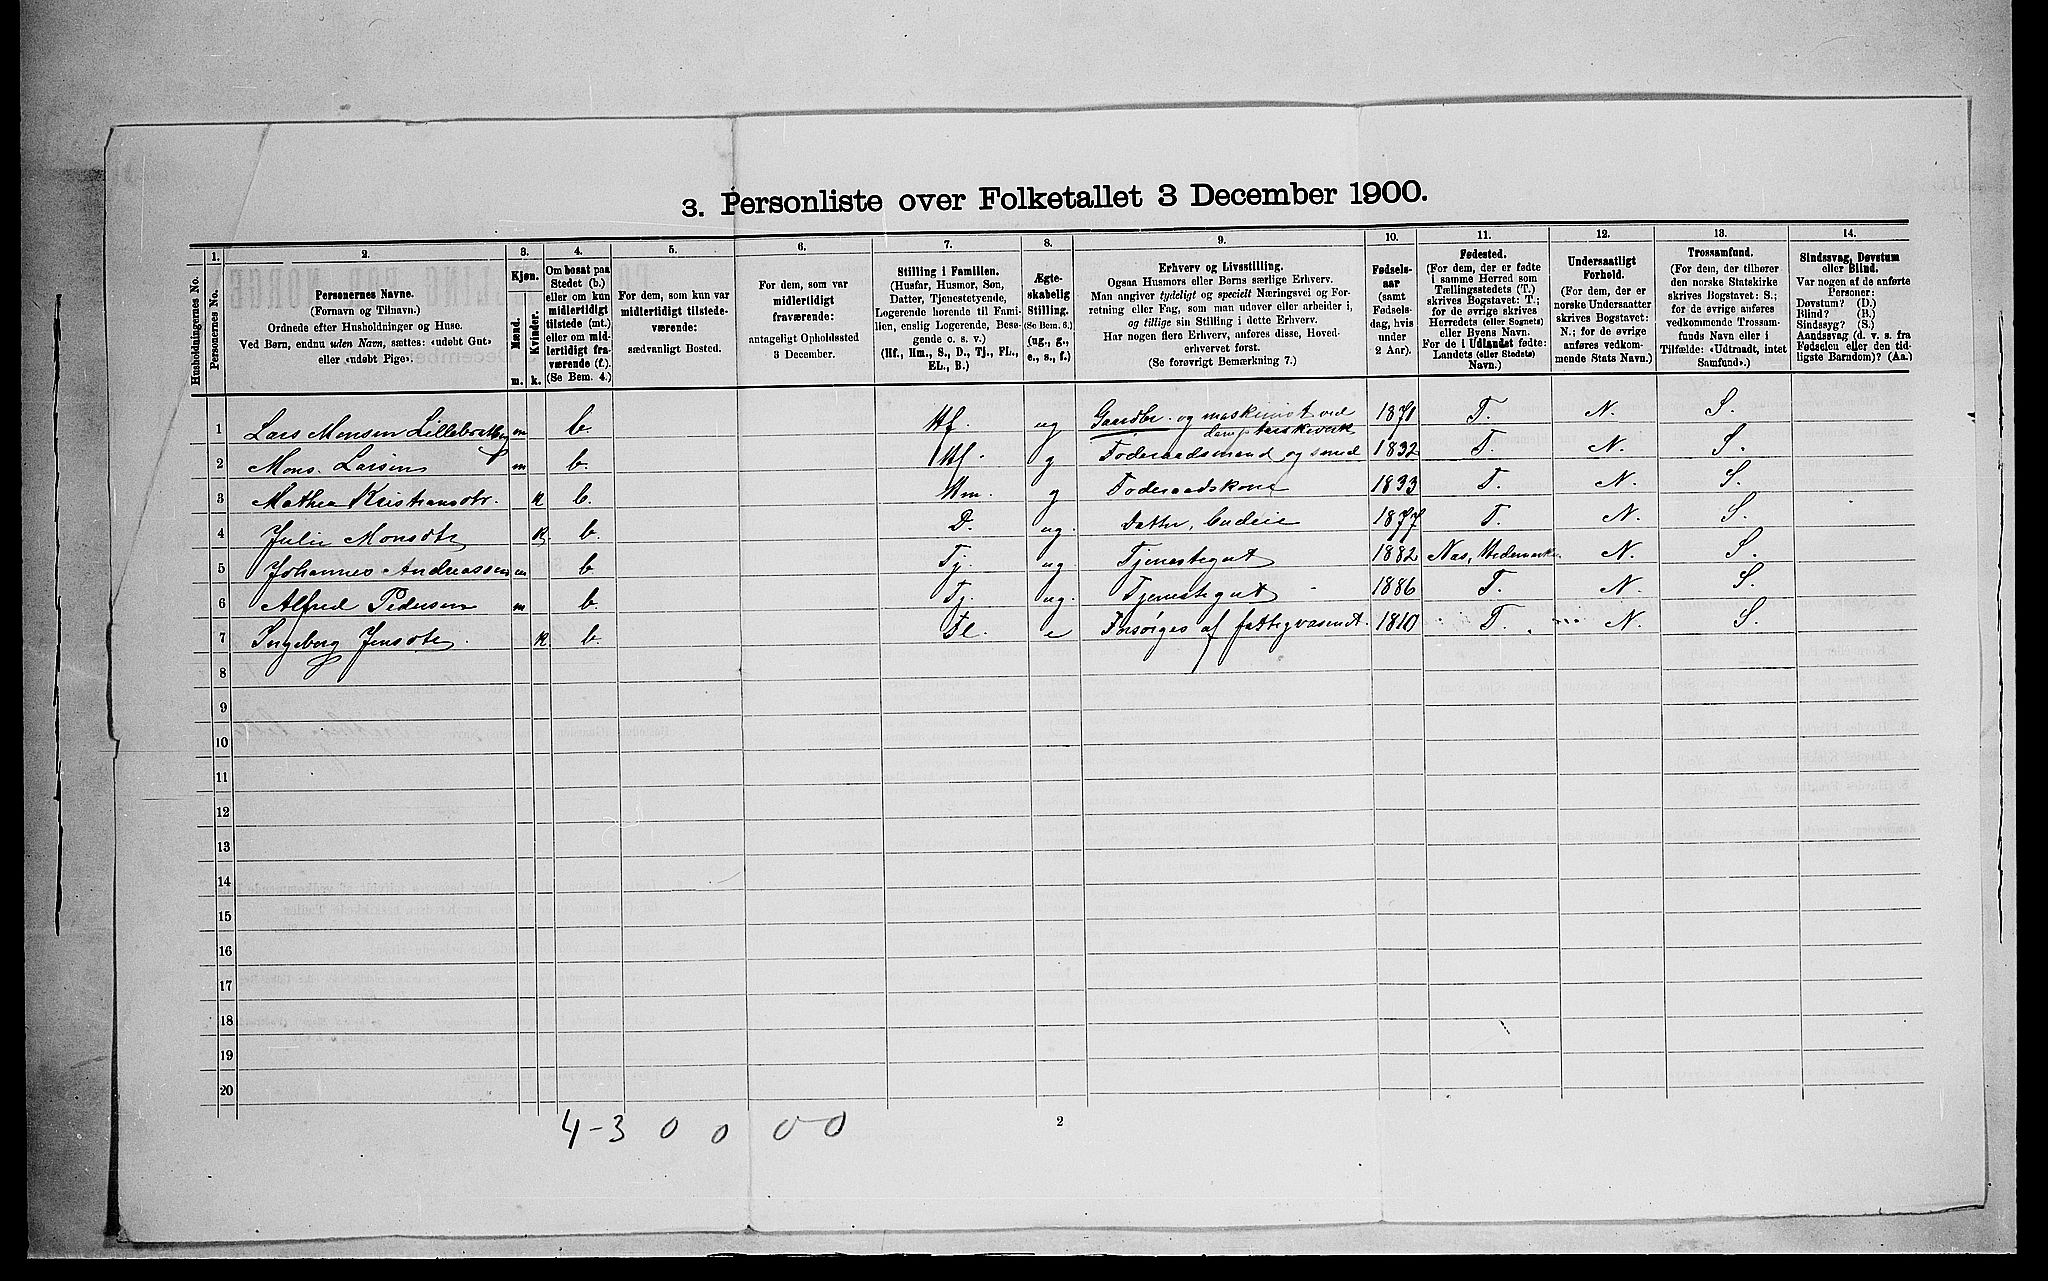 3. Personliste over Folketallet 3 December 1900.
Husholdningernes No.
1.
Personernes No.
2.
Personernes Navne.
(Fornavn og Tilnavn.)
Ordnede efter Husholdninger og Huse.
Ved Børn, endnu uden Navn, sættes: «udøbt Gut»
eller «udøbt Pige».
3.
Kjøn.
Mænd.
m.
Kvinder.
k.
4.
Om bosat paa
Stedet (b.)
eller om kun
midlertidigt
tilstede (mt.)
eller om mid-
lertidigt fra-
værende (f.).
(Se Bem. 4.)
5.
For dem, som kun var
midlertidigt tilstede-
værende:
sædvanligt Bosted.
6.
For dem, som var
midlertidigt
fraværende:
antageligt Opholdssted
3 December.
7.
Stilling i Familien.
(Husfar, Husmor, Søn,
Datter, Tjenestetyende,
Logerende hørende til Fami-
lien, enslig Logerende, Besø-
gende o. s. v.)
(Hf., Hm., S., D., Tj., FL.,
EL., B.)
8.
Ægte-
skabelig
Stilling.
(Se Bem. 6.)
(ug., g.,
e., s., f.)
9.
Erhverv og Livsstilling.
Ogsaa Husmors eller Børns særlige Erhverv.
Man angiver tydeligt og specielt Næringsvei og For-
retning eller Fag, som man udøver eller arbeider i,
og tillige sin Stilling i dette Erhverv.
Har nogen flere Erhverv, anføres disse, Hoved-
erhvervet først.
(Se forøvrigt Bemærkning 7.)
10.
Fødsels-
aar
(samt
Fødsels-
dag, hvis
under
2 Aar).
11.
Fødested.
(For dem, der er fødte
i samme Herred som
Tællingsstedets (T.)
skrives Bogstavet: T.;
for de øvrige skrives
Herredets (eller Sognets)
eller Byens Navn.
For de i Udlandet fødte:
Landets (eller Stedets)
Navn.)
12.
Undersaatligt
Forhold.
(For dem, der er
norske Undersaatter
skrives Bogstavet:
N.; for de øvrige
anføres vedkom-
mende Stats Navn.)
13.
Trossamfund.
(For dem, der tilhører
den norske Statskirke
skrives Bogstavet: S.;
for de øvrige anføres
vedkommende Trossam-
funds Navn eller i
Tilfælde: «Udtraadt, intet
Samfund».)
14.
Sindssvag, Døvstum
eller Blind.
Var nogen af de anførte
Personer:
Døvstum? (D.)
Blind? (B.)
Sindssyg? (S.)
Aandssvag (d. v. s. fra
Fødselen eller den tid-
ligste Barndom)? (Aa.)
1 Lars Monsen Lillebratberg m b. Hf. ug Gaardbr. og maskinist ved damptærskeverk 1871 T. N. S.
2 Mons. Larsen m b. Hf. g Føderaadsmand og smed 1832 T. N. S.
3 Mathea Kristiansdtr. k b. Hm. g Føderaadskone 1833 T. N. S.
4 Julie Monsdtr k. b. D. ug. Datter, budeie 1877 T. N. S.
5 Johannes Andreassen m b Tj. ug Tjenestegut 1882 Næs, Hedemarken. N. S.
6 Alfred Pedersen m b. Tj. ug. Tjenestegut 1886 T. N. S.
7 Ingeborg Jensdtr. k b. Fl. e Forsørges af fattigvæsenet. 1810 T. N. S.
8
9
10
11
12
13
14
15
16
17
18
19
20
4-3 0 0 0 0
2